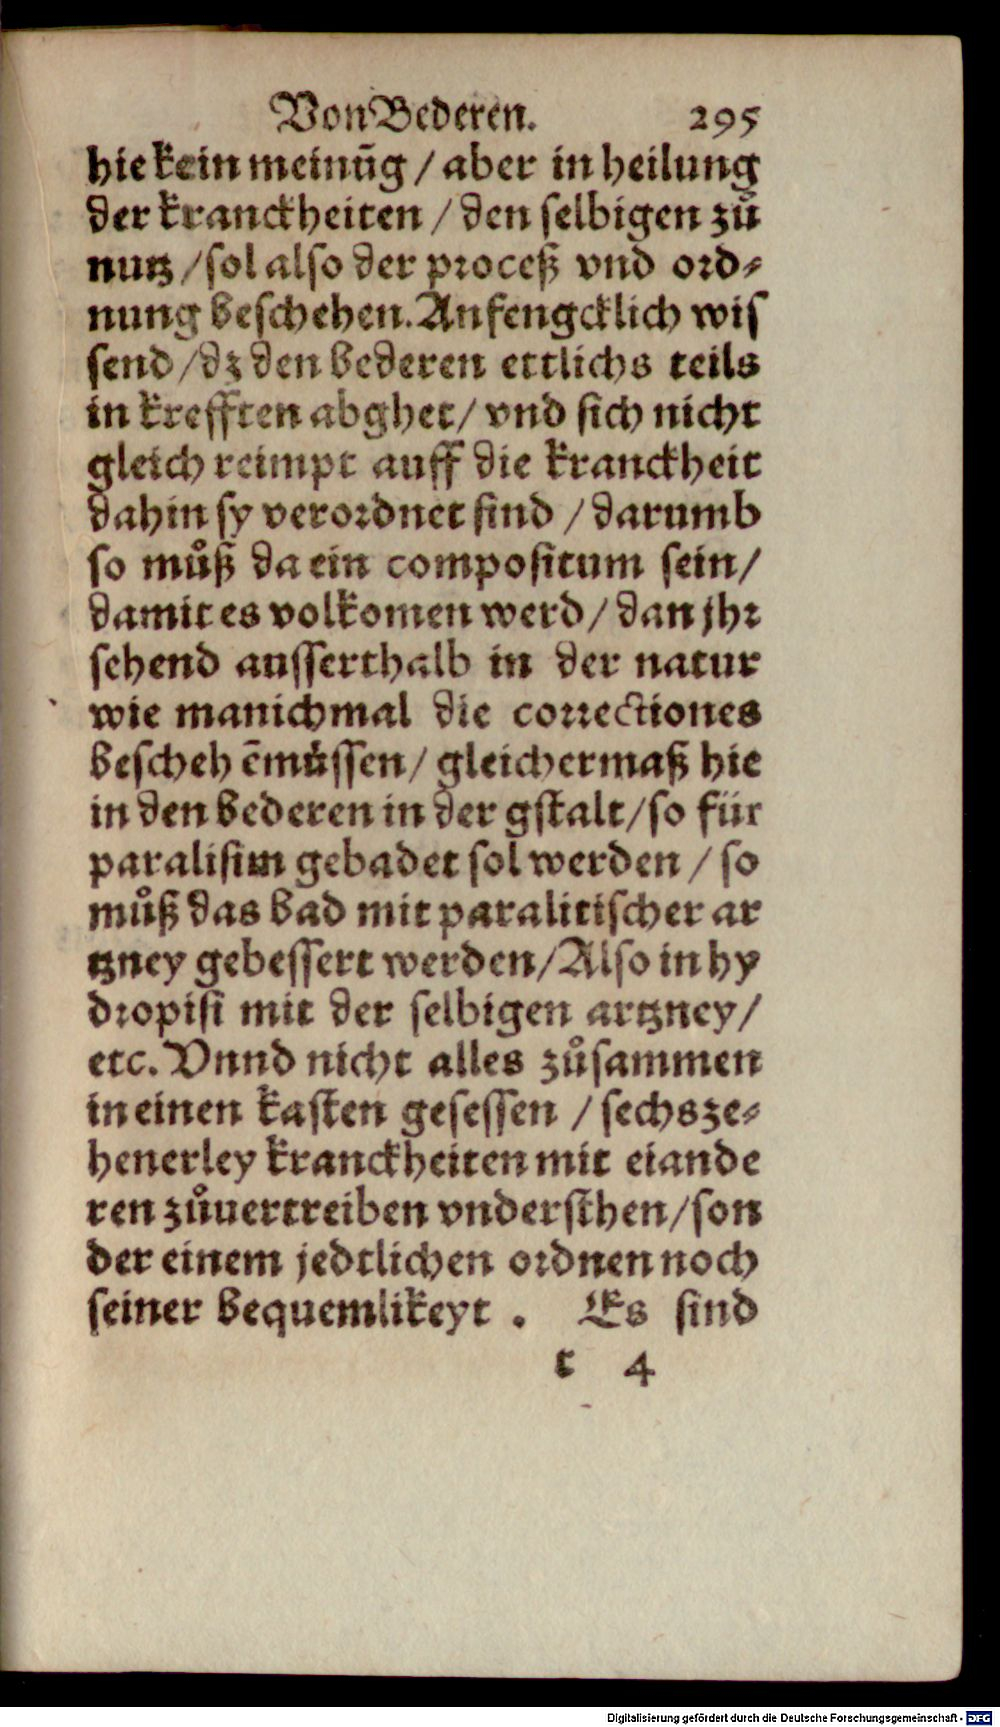 Von Bederen. 295
hie kein meinūg / aber in heilung
der kranckheiten / den selbigen zů
nutz / sol also der proceß vnd ord⸗
nung beschehen. Anfengcklich wis
send / dz den bederen ettlichs teils
in krefften abghet / vnd sich nicht
gleich reimpt auff die kranckheit
dahin sy verordnet sind / darumb
so můß da ein compositum sein /
damit es volkomen werd / dan jhr
sehend ausserthalb in der natur
wie manichmal die correctiones
bescheh ēmůssen / gleichermaß hie
in den bederen in der gstalt / so für
paralisim gebadet sol werden / so
můß das bad mit paralitischer ar
tzney gebessert werden / Also in hy
dropisi mit der selbigen artzney /
etc. Vnnd nicht alles zůsammen
in einen kasten gesessen / sechsze⸗
henerley kranckheiten mit eiande
ren zůuertreiben vndersthen / son
der einem jedtlichen ordnen noch
seiner bequemlikeyt . Es sind
t 4
Digitalisierung gefördert durch die Deutsche Forschungsgemeinschaft - DFG